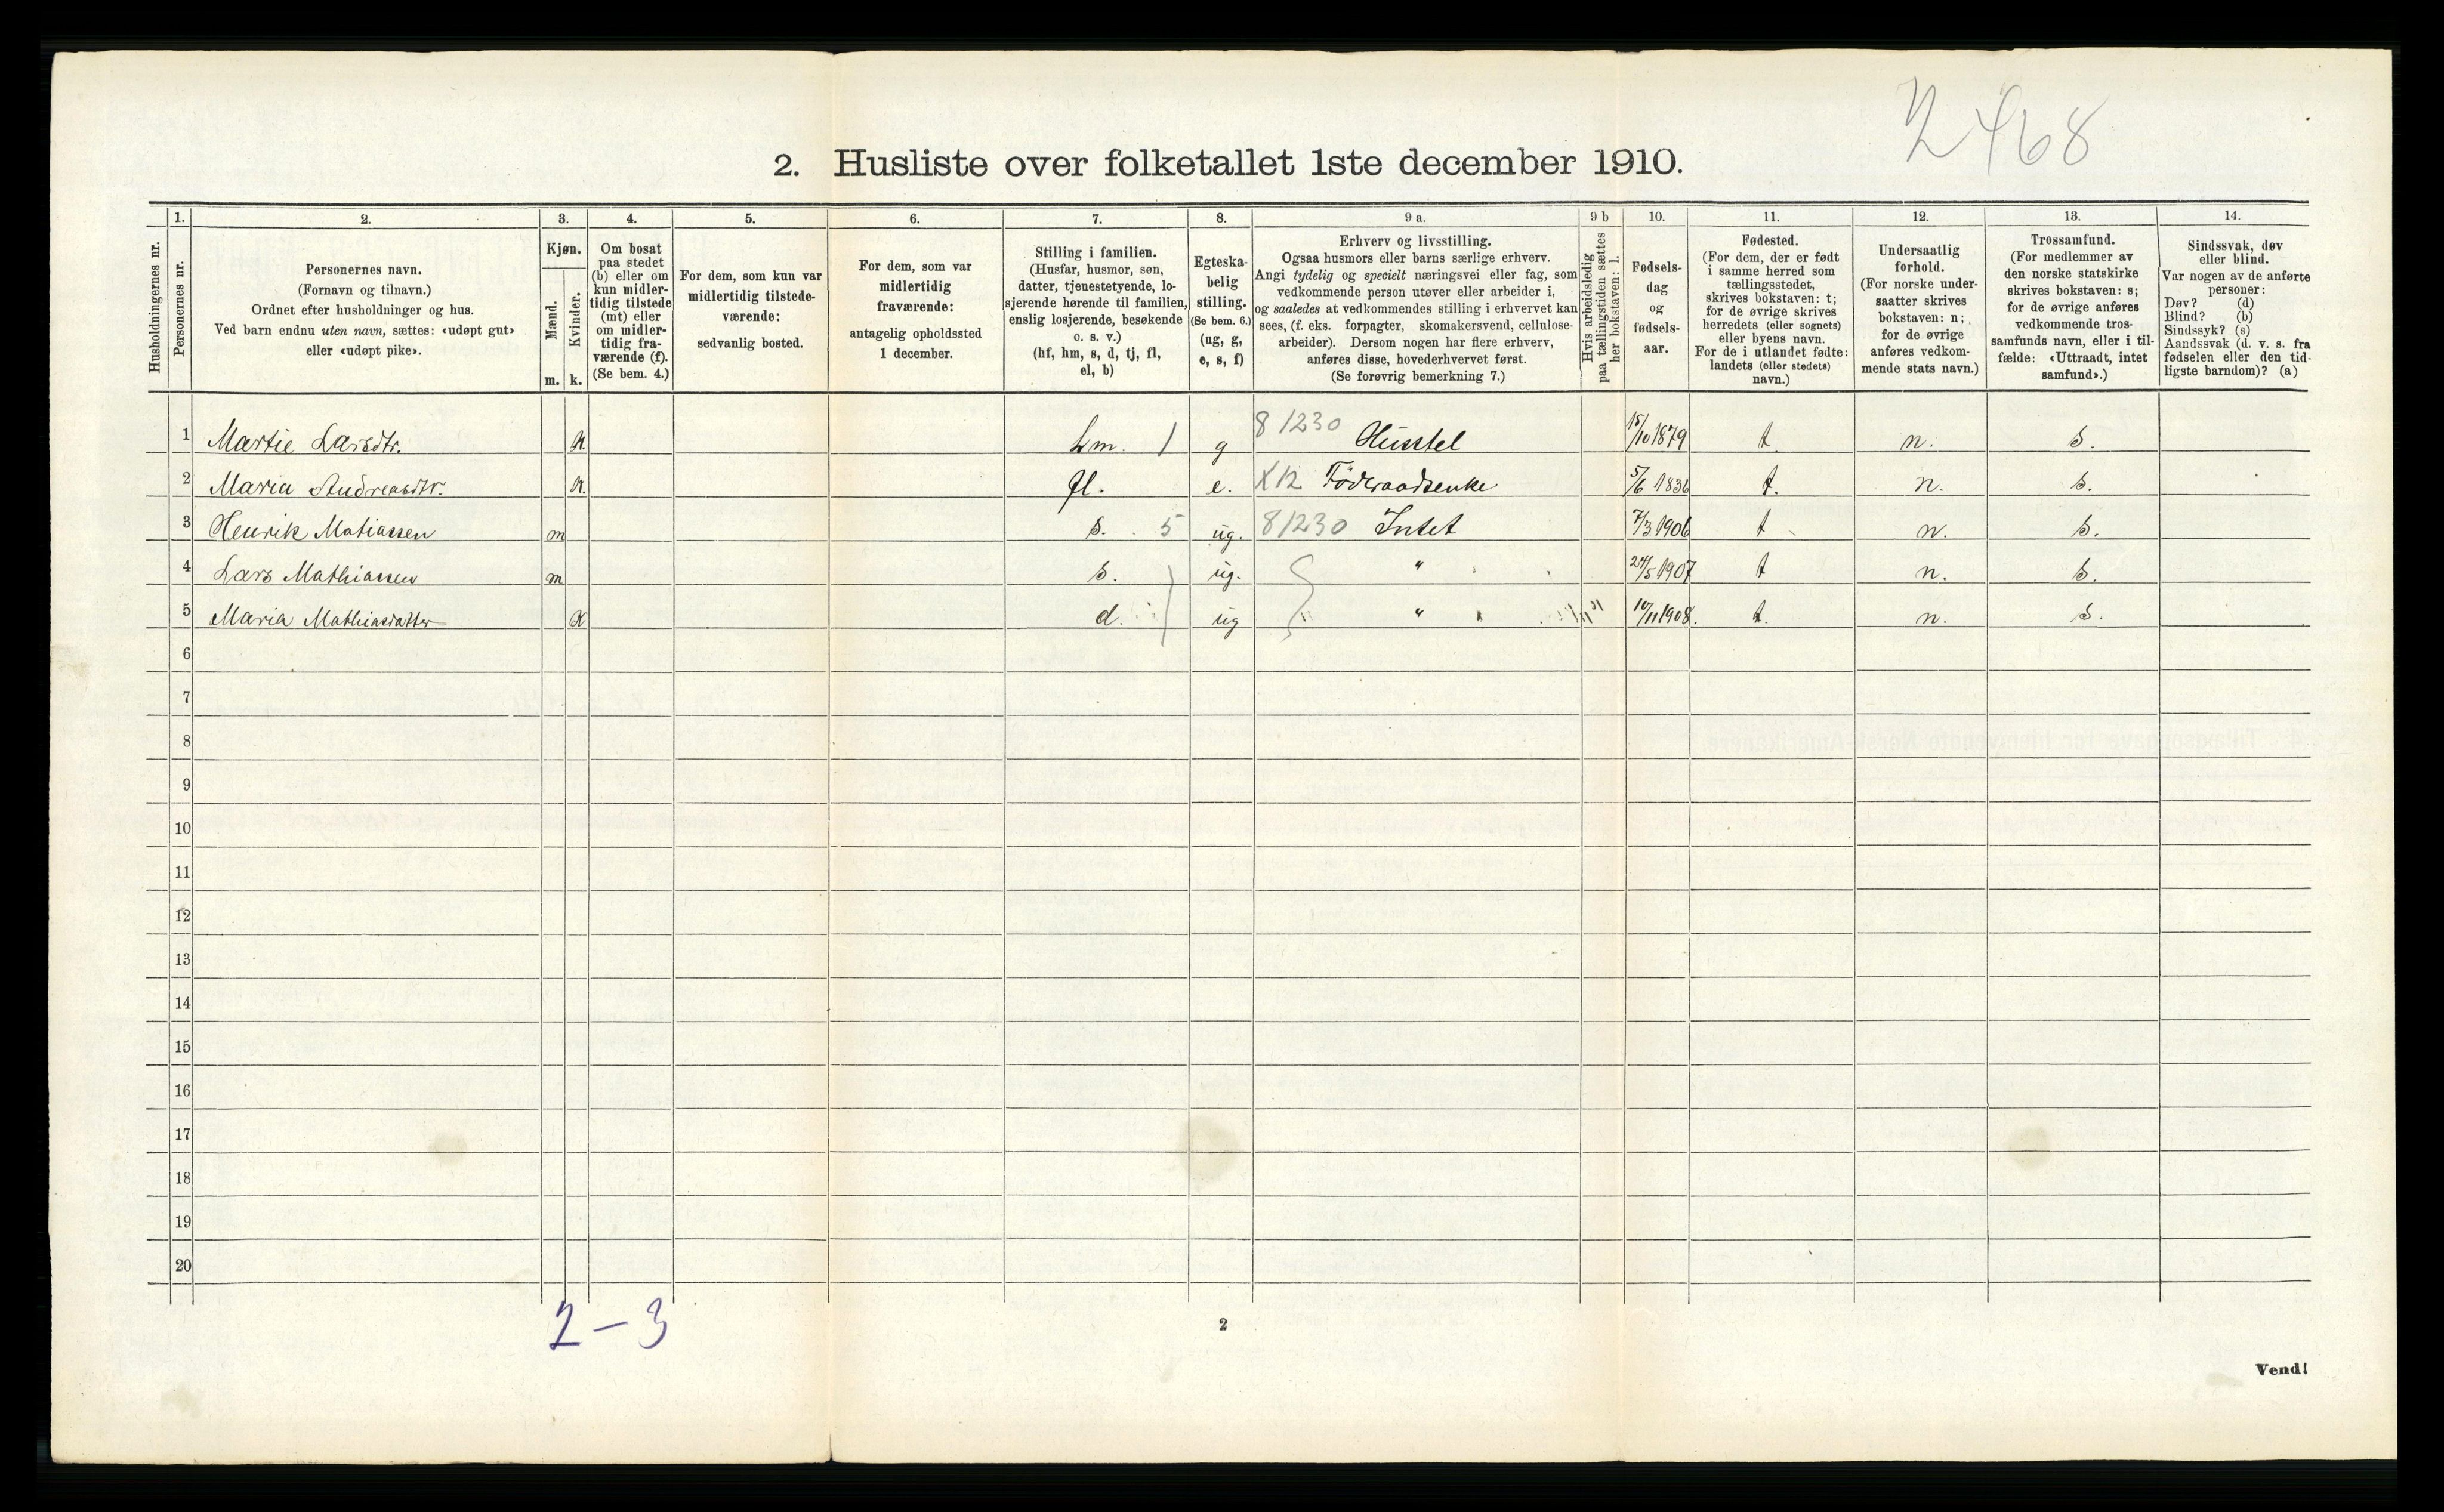 2468
2. Husliste over folketallet 1ste december 1910.
Husholdningernes nr.
1.
Personernes nr.
2.
Personernes navn.
(Fornavn og tilnavn.)
Ordnet efter husholdninger og hus.
Ved barn endnu uten navn, sættes: «udøpt gut»
eller «udøpt pike».
3.
Kjøn.
Mænd.
Kvinder.
m. k.
4.
Om bosat
paa stedet
(b) eller om
kun midler-
tidig tilstede
(mt) eller
om midler-
tidig fra-
værende (f).
(Se bem. 4.)
5.
For dem, som kun var
midlertidig tilstede-
værende:
sedvanlig bosted.
6.
For dem, som var
midlertidig
fraværende:
antagelig opholdssted
1 december.
7.
Stilling i familien.
(Husfar, husmor, søn,
datter, tjenestetyende, lo-
sjerende hørende til familien,
enslig losjerende, besøkende
o. s. v.)
(hf, hm, s, d, tj, fl,
el, b)
8.
Egteska-
belig
stilling.
(Se bem. 6.)
(ug, g,
e, s, f)
9 a.
Erhverv og livsstilling.
Ogsaa husmors eller barns særlige erhverv.
Angi tydelig og specielt næringsvei eller fag, som
vedkommende person utøver eller arbeider i,
og saaledes at vedkommendes stilling i erhvervet kan
sees, (f. eks. forpagter, skomakersvend, cellulose-
arbeider). Dersom nogen har flere erhverv,
anføres disse, hovederhvervet først.
(Se forøvrig bemerkning 7.)
9 b
Hvis arbeidsledig
paa tællingstiden sættes
her bokstaven: l.
10.
Fødsels-
dag
og
fødsels-
aar.
11.
Fødested.
(For dem, der er født
i samme herred som
tællingsstedet,
skrives bokstaven: t;
for de øvrige skrives
herredets (eller sognets)
eller byens navn.
For de i utlandet fødte:
landets (eller stedets)
navn.)
12.
Undersaatlig
forhold.
(For norske under-
saatter skrives
bokstaven: n;
for de øvrige
anføres vedkom-
mende stats navn.)
13.
Trossamfund.
(For medlemmer av
den norske statskirke
skrives bokstaven: s;
for de øvrige anføres
vedkommende tros-
samfunds navn, eller i til-
fælde: «Uttraadt, intet
samfund».)
14.
Sindssvak, døv
eller blind.
Var nogen av de anførte
personer:
Døv? (d)
Blind? (b)
Sindssyk? (s)
Aandssvak (d. v. s. fra
fødselen eller den tid-
ligste barndom)? (a)
1 Martie Larsdtr. k. hm. 1 g 81230 Husstel 15/10 1879 t n. s.
2 Maria Andreasdtr. k. fl. e. X12 Föderaadsenke 5/6 1836 t. n. s.
3 Henrik Matiassen m s. 5 ug. 81230 Intet 7/3 1906 t n. s.
4 Lars Mathiassen m s. ug. " 24/5 1907 t n. s.
5 Maria Mathiasdatter k d. ug " 10/11 1908. t. n. s.
6
7
8
9
10
11
12
13
14
15
16
17
18
19
20
2 - 3
2
Vend!